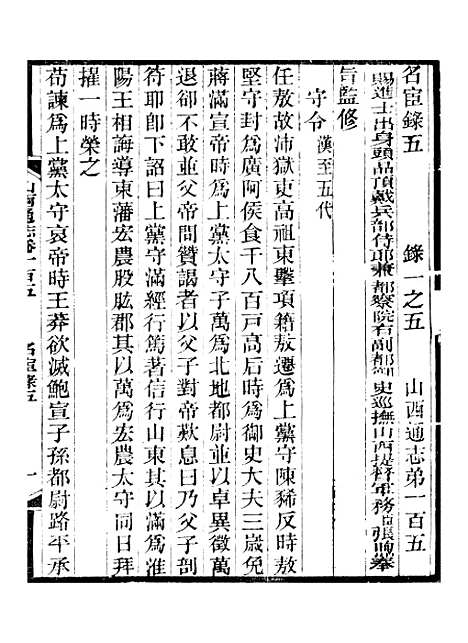 名宦錄五 錄一之五 山西通志弟一百五
賜進士出身頭品頂戴兵部侍郎兼都察院右副都御史巡撫山西提督軍務臣張煦奉
旨監修
守令 漢至五代
任敖故沛獄吏高祖東擊項籍敖遷為上黨守陳豨反時敖
堅守封為廣阿侯食千八百戶高后時為御史大夫三歲免
蔣滿宣帝時為上黨太守子萬為北地都尉並以卓異徵萬
退卻不敢並父帝問贊謁者以父子對帝歎息曰乃父子剖
符耶卽下詔曰上黨守滿經行篤著信行山東其以滿為淮
陽王相誨導東藩宏農股肱郡其以萬為宏農太守同日拜
擢一時榮之
荀諫為上黨太守哀帝時王莽欲滅鮑宣子孫都尉路平承
山西通志卷一百五 名宦錄五 一